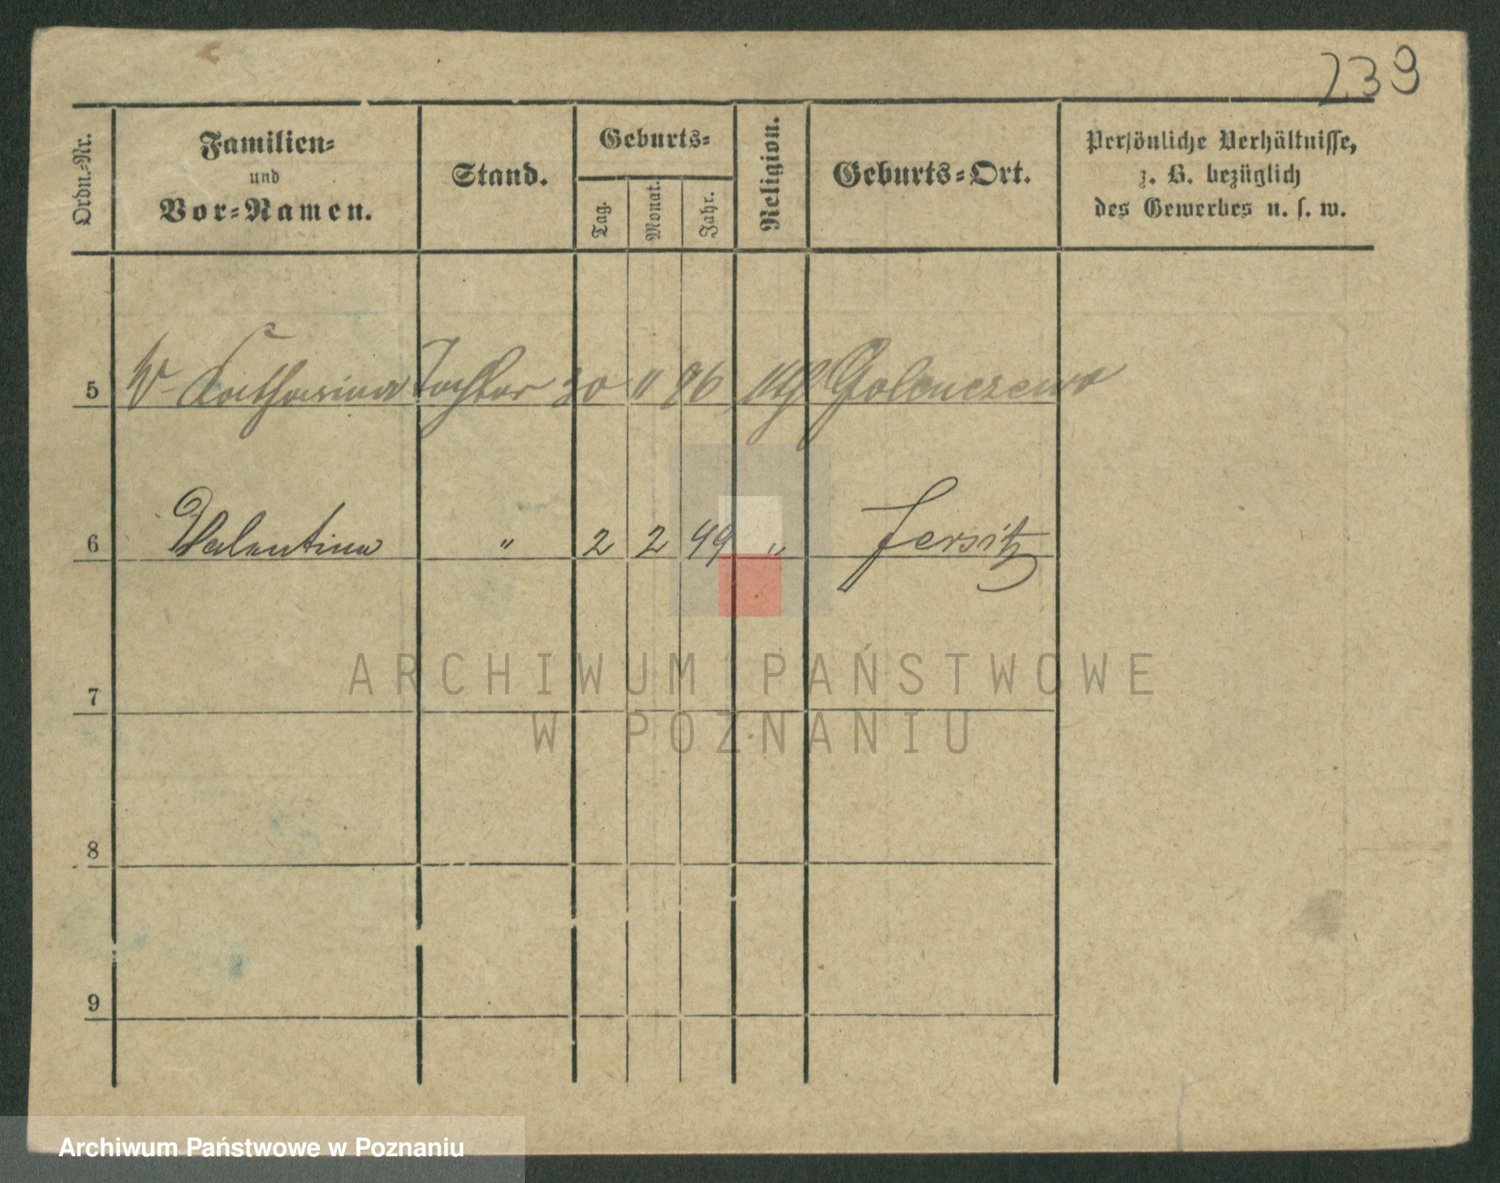 239
Ordn.-Nr.
Familien-
und
Vor-Namen.
Stand.
Geburts-
Tag.
Monat.
Jahr.
Religion.
Geburts-Ort.
Persönliche Verhältnisse,
z. B. bezüglich
des Gewerbes u. s. w.
5 Katharina Tochter 30 11 86 kth Golenczewo
6 Valentina " 2 2 99 " Jersitz
7
8
9
ARCHIWUM PAŃSTWOWE
W POZNANIU
Archiwum Państwowe w Poznaniu